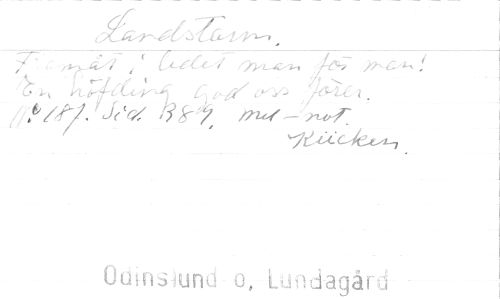 Landstorm.
Framåt i ledet man för man!
En höfding god oss förer.
No 187. Sid. 389. mel-not.
Kücken.
Odinslund o, Lundagård